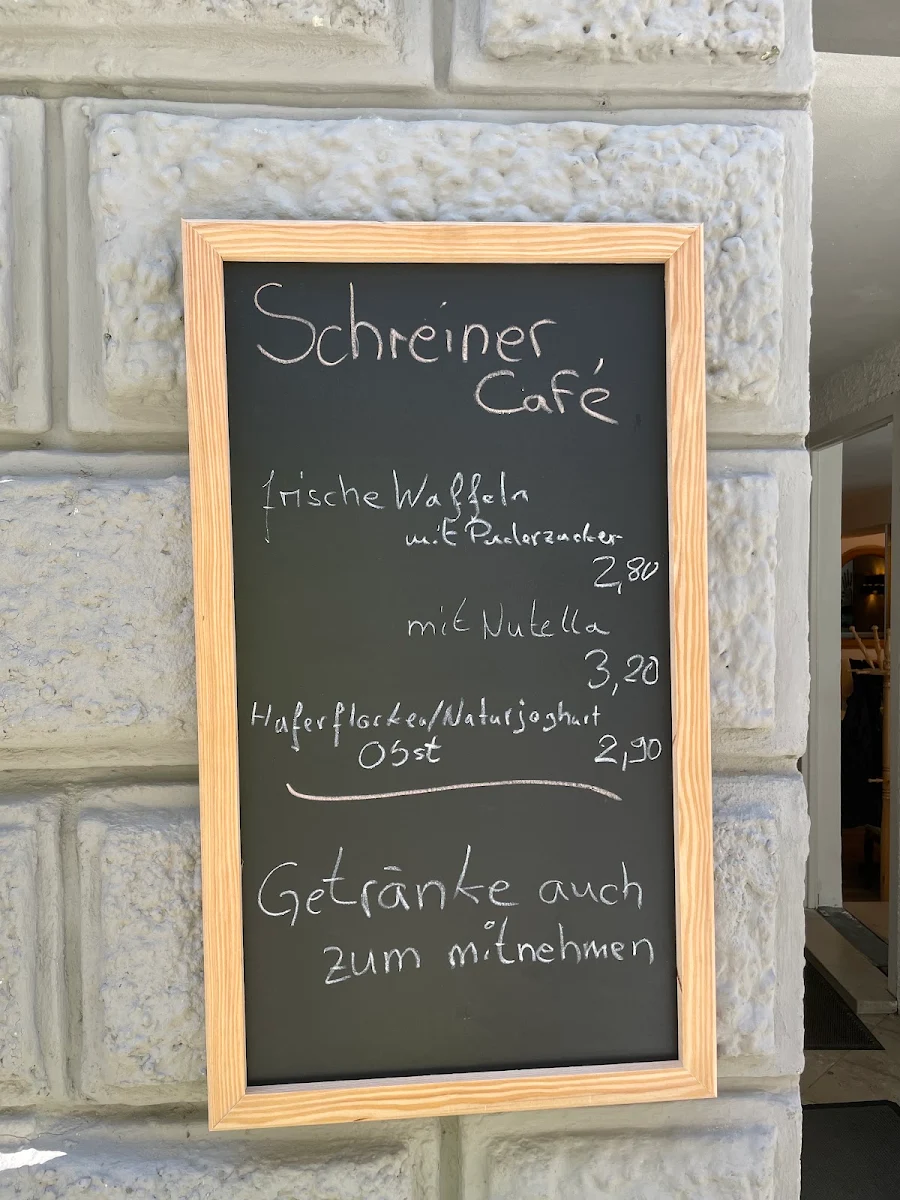 Schreiner
Café
frische Waffeln
mit Puderzucker
2,80
mit Nutella
3,20
Haferflocken/Naturjoghurt
Obst 2,90
Getränke auch
zum mitnehmen